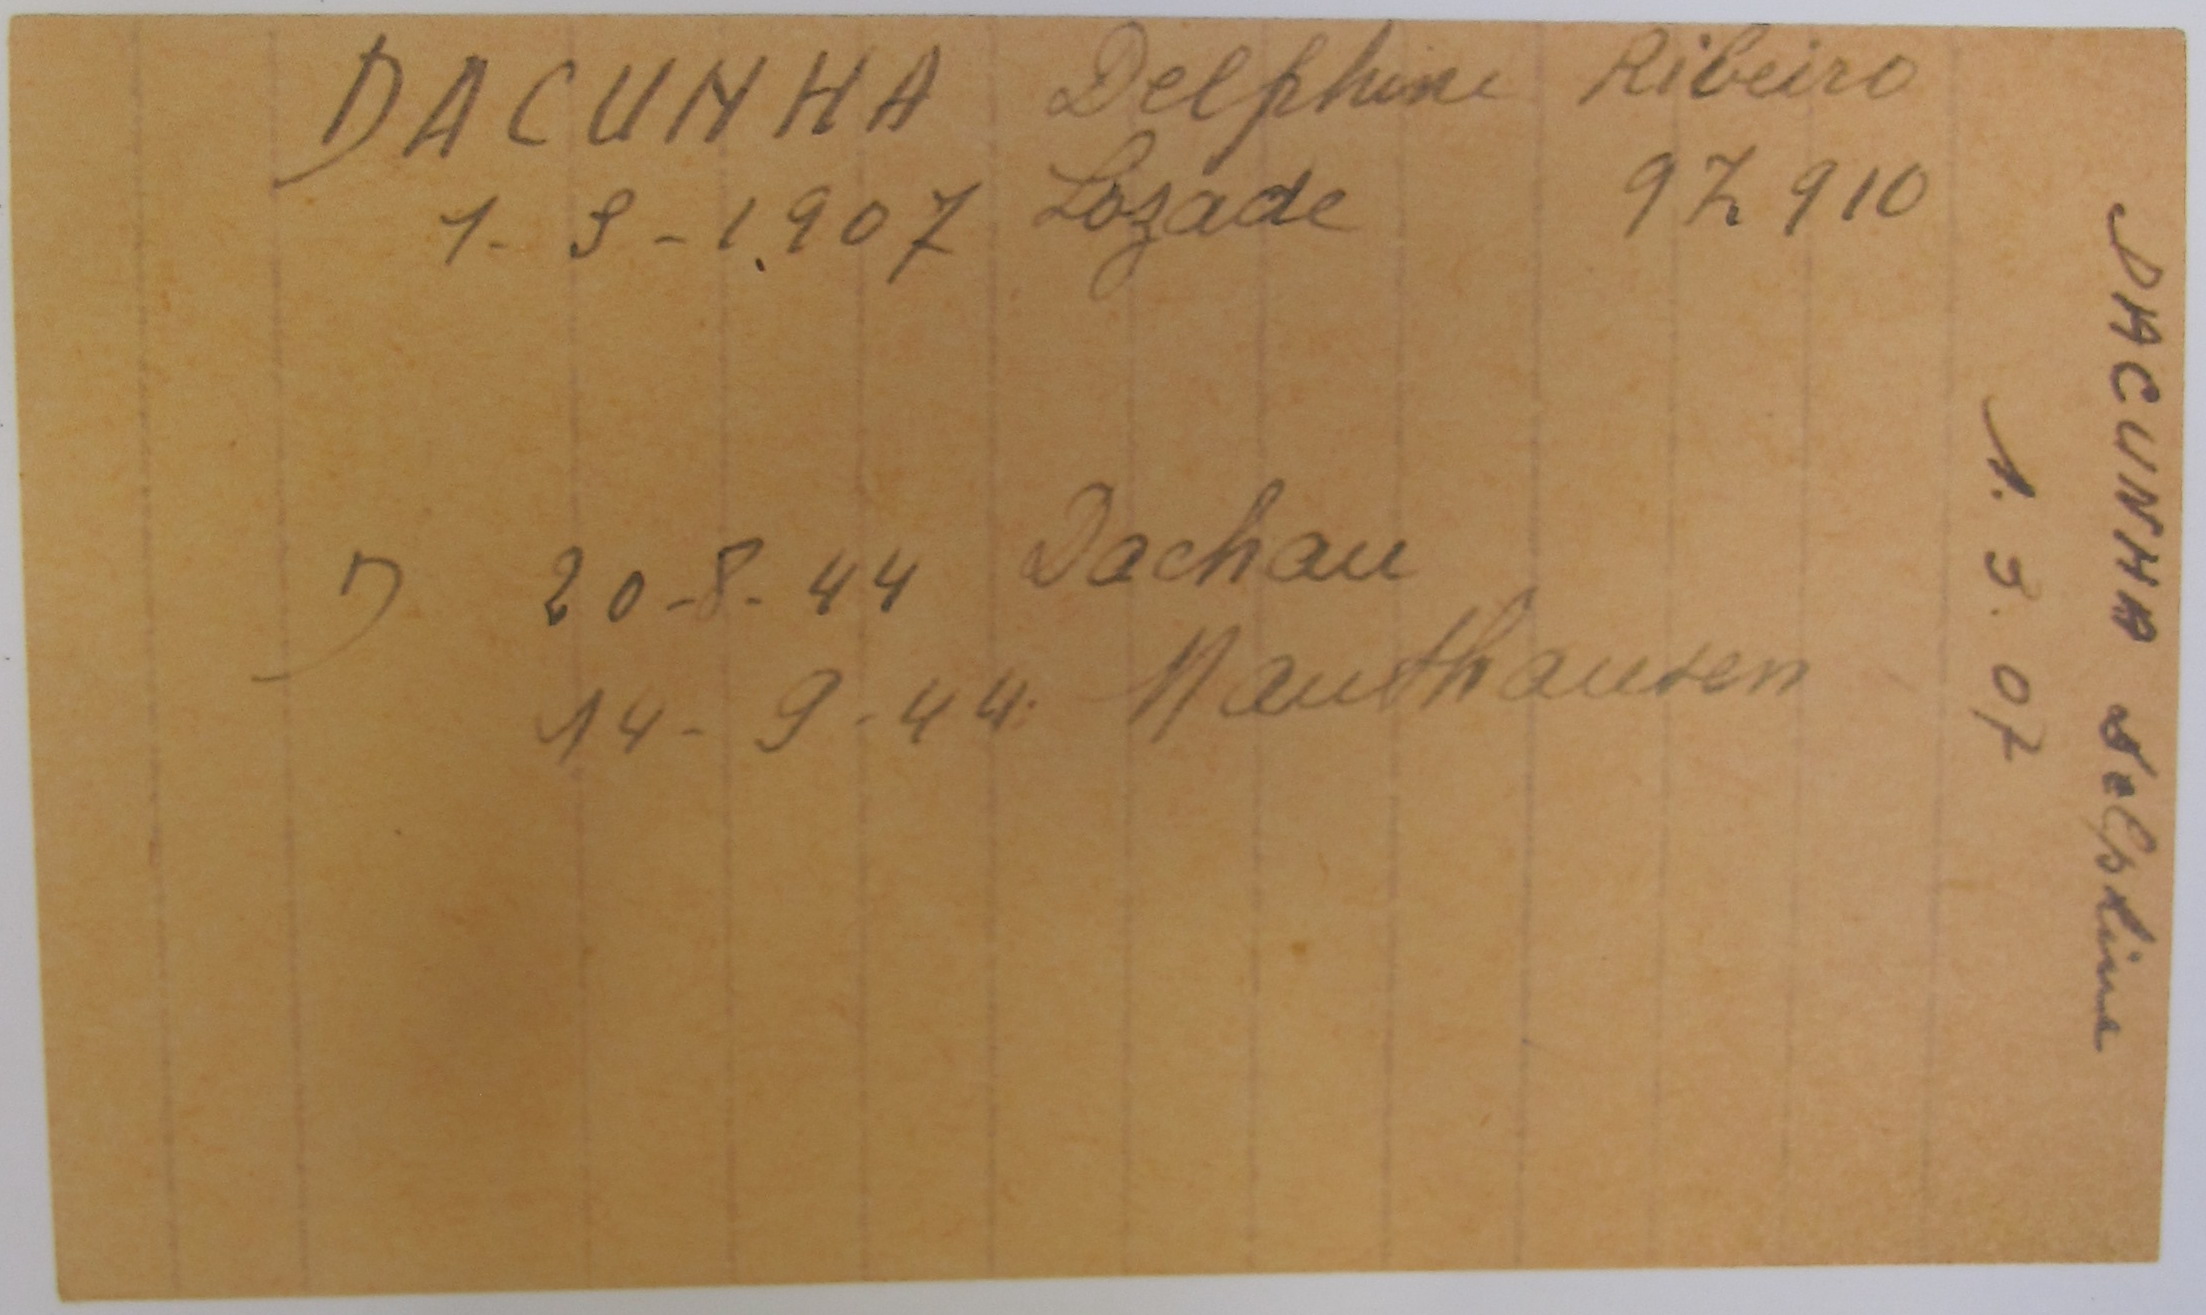 DACUNHA Delphine Ribeiro
1-3-1907 Lozade 97910
D 20-8-44 Dachau
14-9-44. Mauthausen
DACUNHA Delphine
1. 3. 07